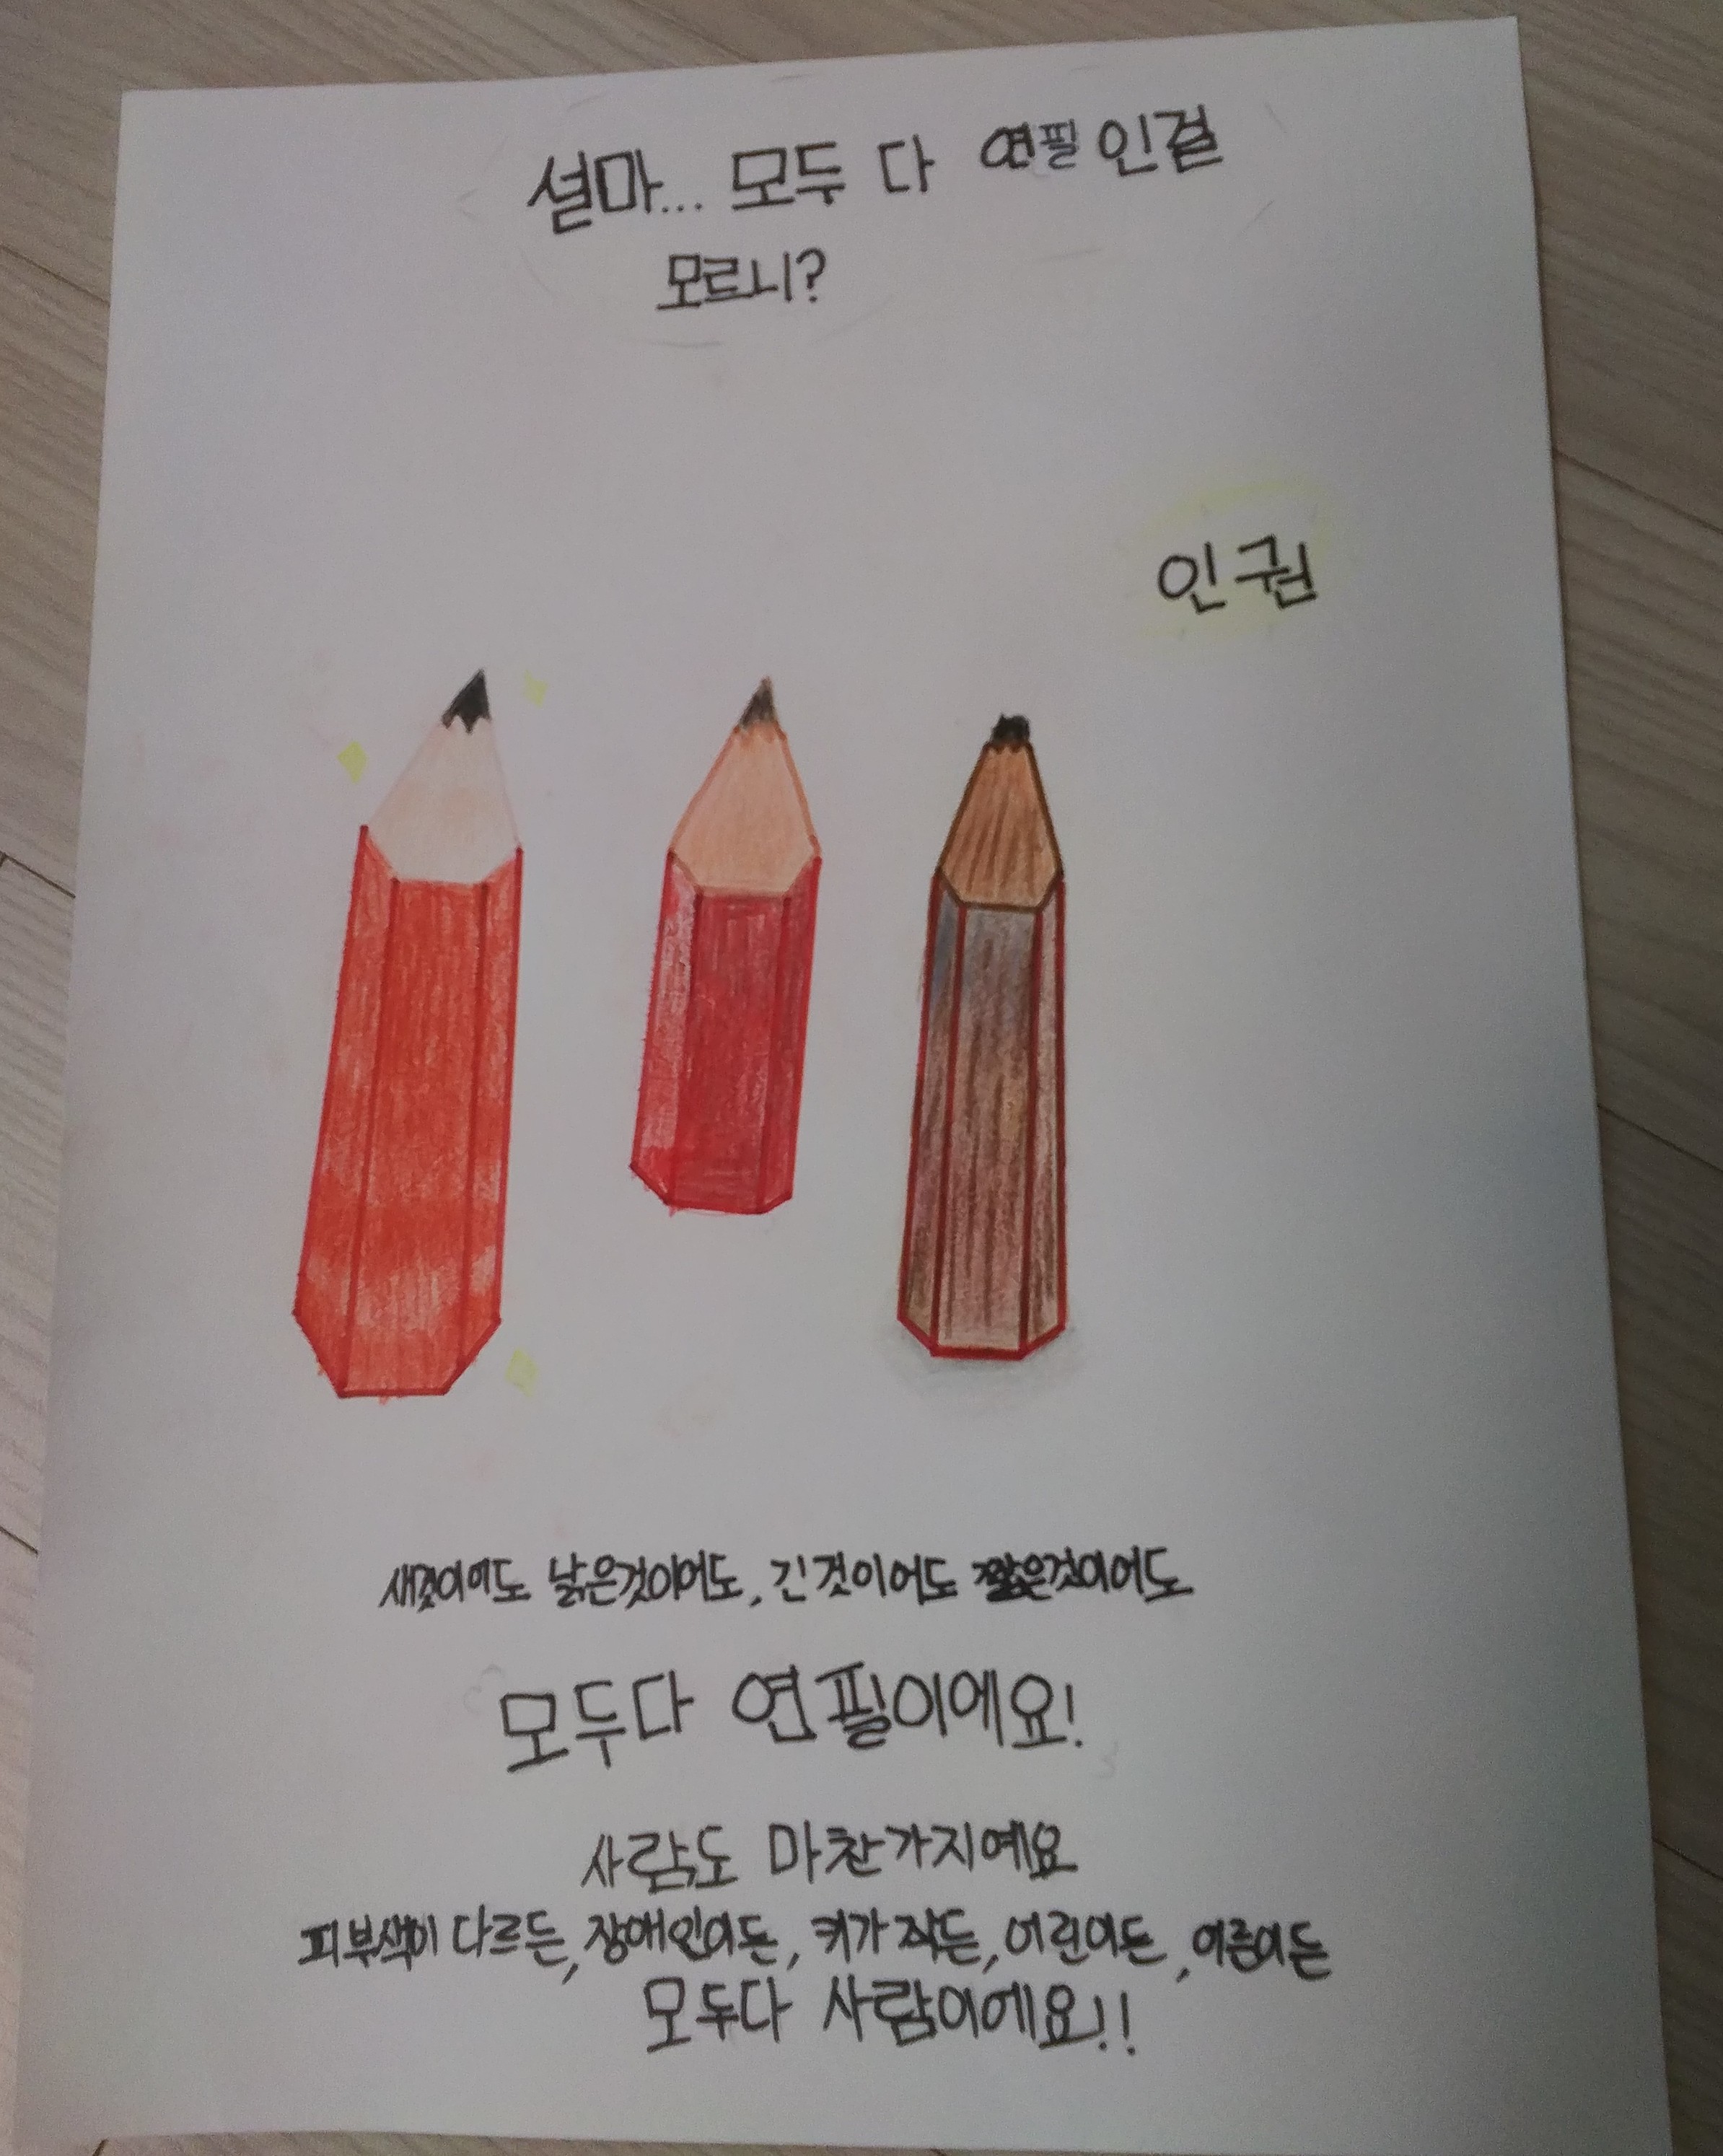 설마... 모두 다 연필인걸
모르니?
인권
새것이어도 낡은것이어도, 긴것이어도 짧은것이어도
모두다 연필이에요!
사람도 마찬가지예요
피부색이 다르든, 장애인이든, 키가 작든, 어린이든, 어른이든
모두다 사람이에요!!